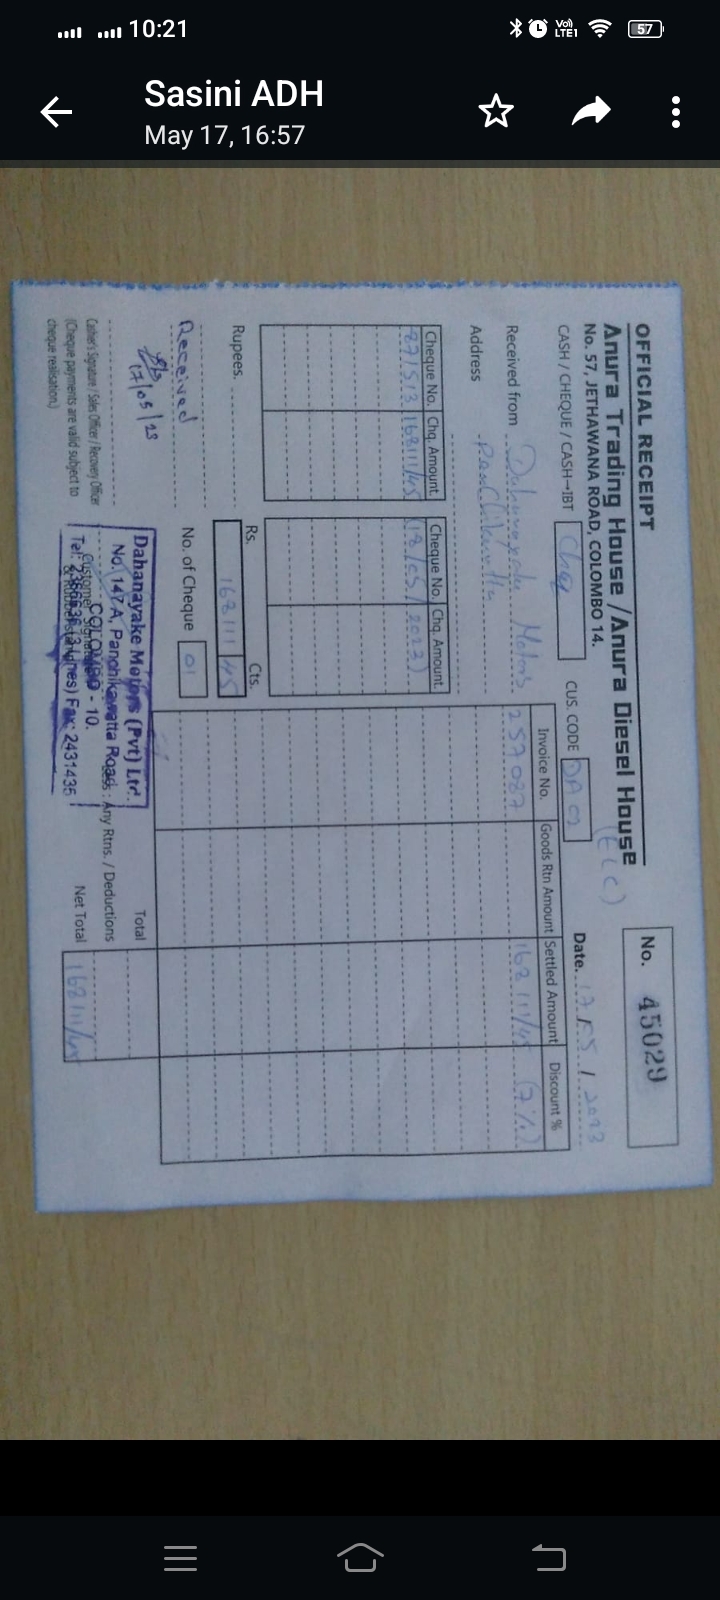 10:21
Vo)
LTE1
57
Sasini ADH
May 17, 16:57
OFFICIAL RECEIPT
No. 45029
Anura Trading House / Anura Diesel House
(ELC)
No. 57, JETHAWANA ROAD, COLOMBO 14.
CASH / CHEQUE / CASH→IBT Cheq
CUS. CODE DA 02
Date. 17 / 05 / 2023
Received from Dahanayake Motors
Address Panchikawatta
Cheque No. Chq. Amount. Cheque No. Chq. Amount.
871513 168111/45 (18/05/2023)
Invoice No. Goods Rtn Amount Settled Amount Discount %
257087 168111/45 (7%)
Rupees.
Rs. Cts.
168111 45
Received
No. of Cheque 01
17/05/23
Cashier's Signature / Sales Officer / Recovery Officer
(Cheque payments are valid subject to
cheque realisation.)
Customer
Dahanayake Motors (Pvt) Ltd.
No. 147 A, Panchikawatta Road,
COLOMBO - 10.
Fax: 2431435
Total
Any Rtns. / Deductions
Net Total 168111/45